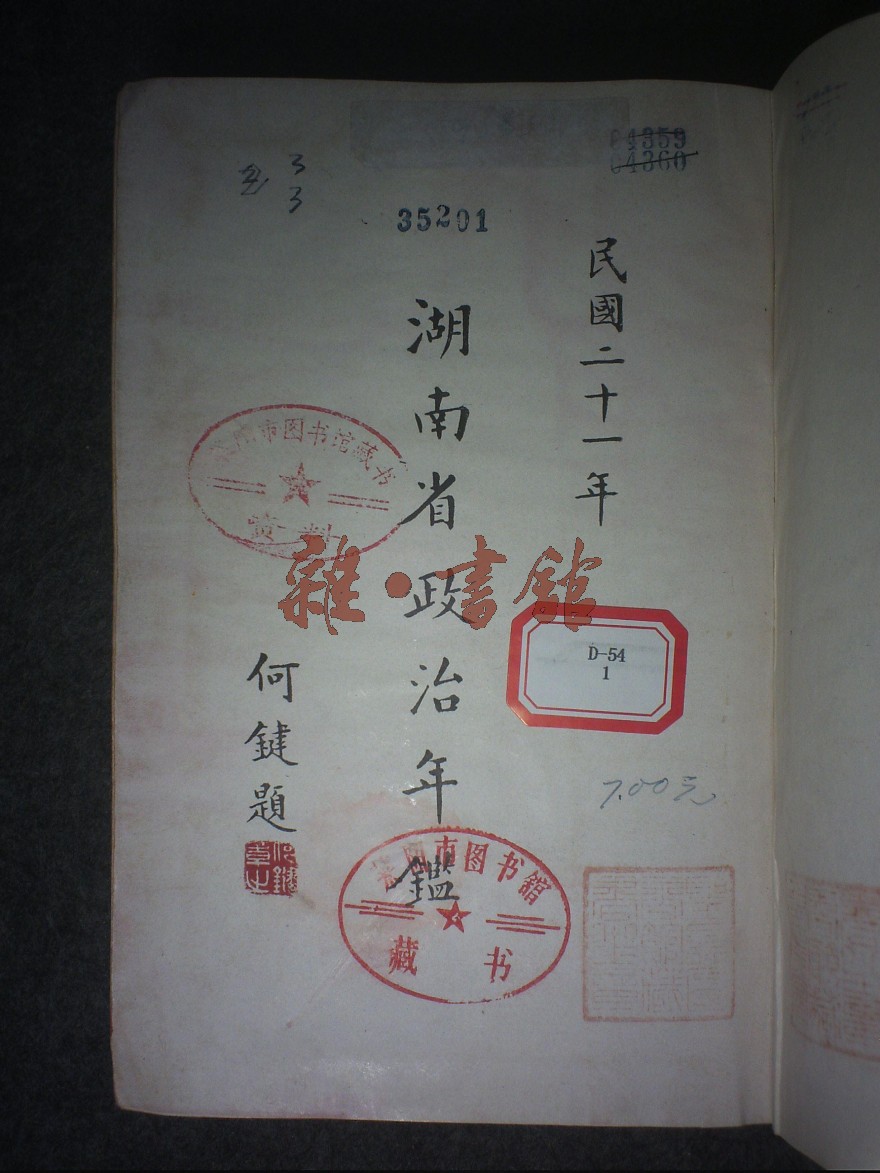 04359
04360
3
3
35201
民國二十一年
湖南省政治年鑑
何鍵題
市图书馆藏书
资料
雜·書館
D-54
1
7.00元
市图书館
藏书